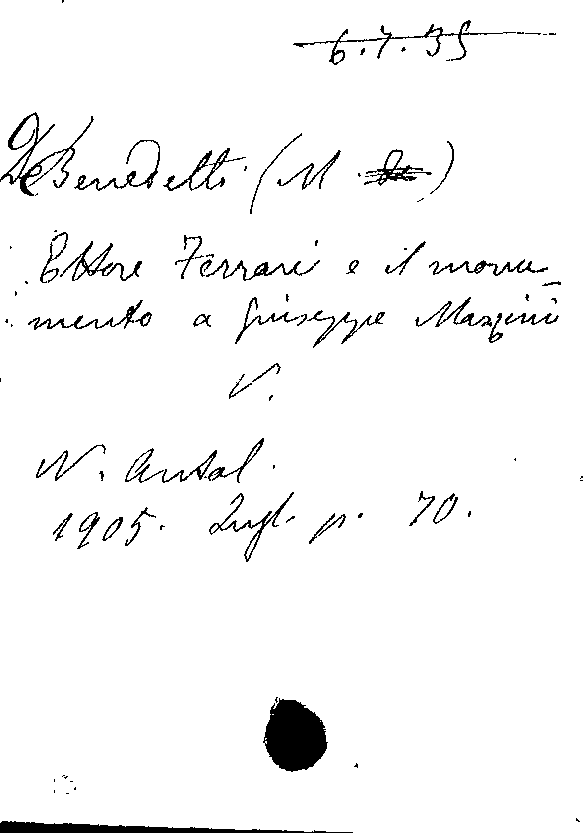 6.7.35
De Benedetti (M. de)
Ettore Ferrari e il monu-
mento a Giuseppe Mazzini
V.
N. Antol.
1905. Lugl. p. 70.